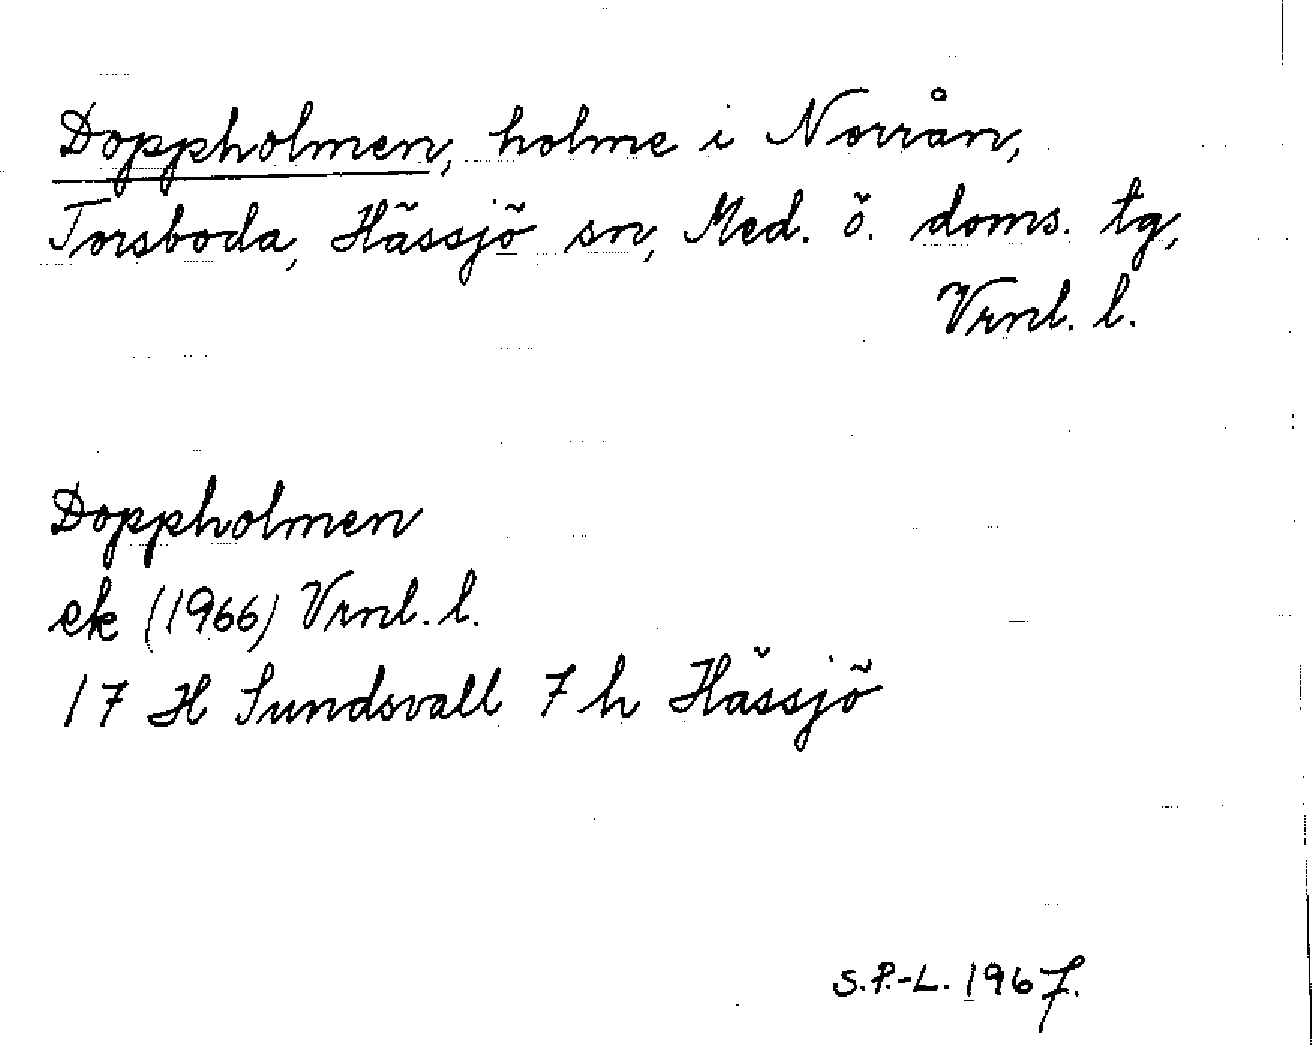 Doppholmen, holme i Norrån,
Torsboda, Hässjö sn, Med. ö. doms. tg,
Vrnl. l.
Doppholmen
ek (1966) Vrnl. l.
17 H Sundsvall 7 h Hässjö
S.P.-L. 1967.